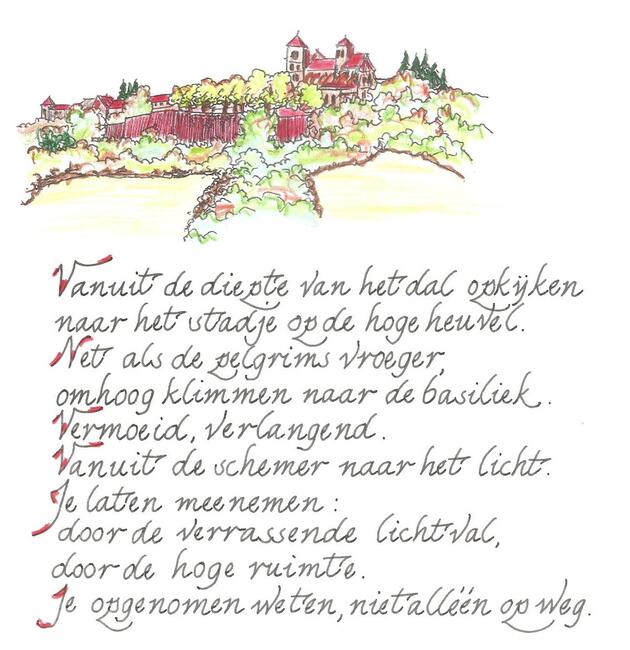 Vanuit de diepte van het dal opkijken
naar het stadje op de hoge heuvel.
Net als de pelgrims vroeger,
omhoog klimmen naar de basiliek.
Vermoeid, verlangend.
Vanuit de schemer naar het licht.
Je laten meenemen:
door de verrassende lichtval,
door de hoge ruimte.
Je opgenomen weten, niet alléén op weg.